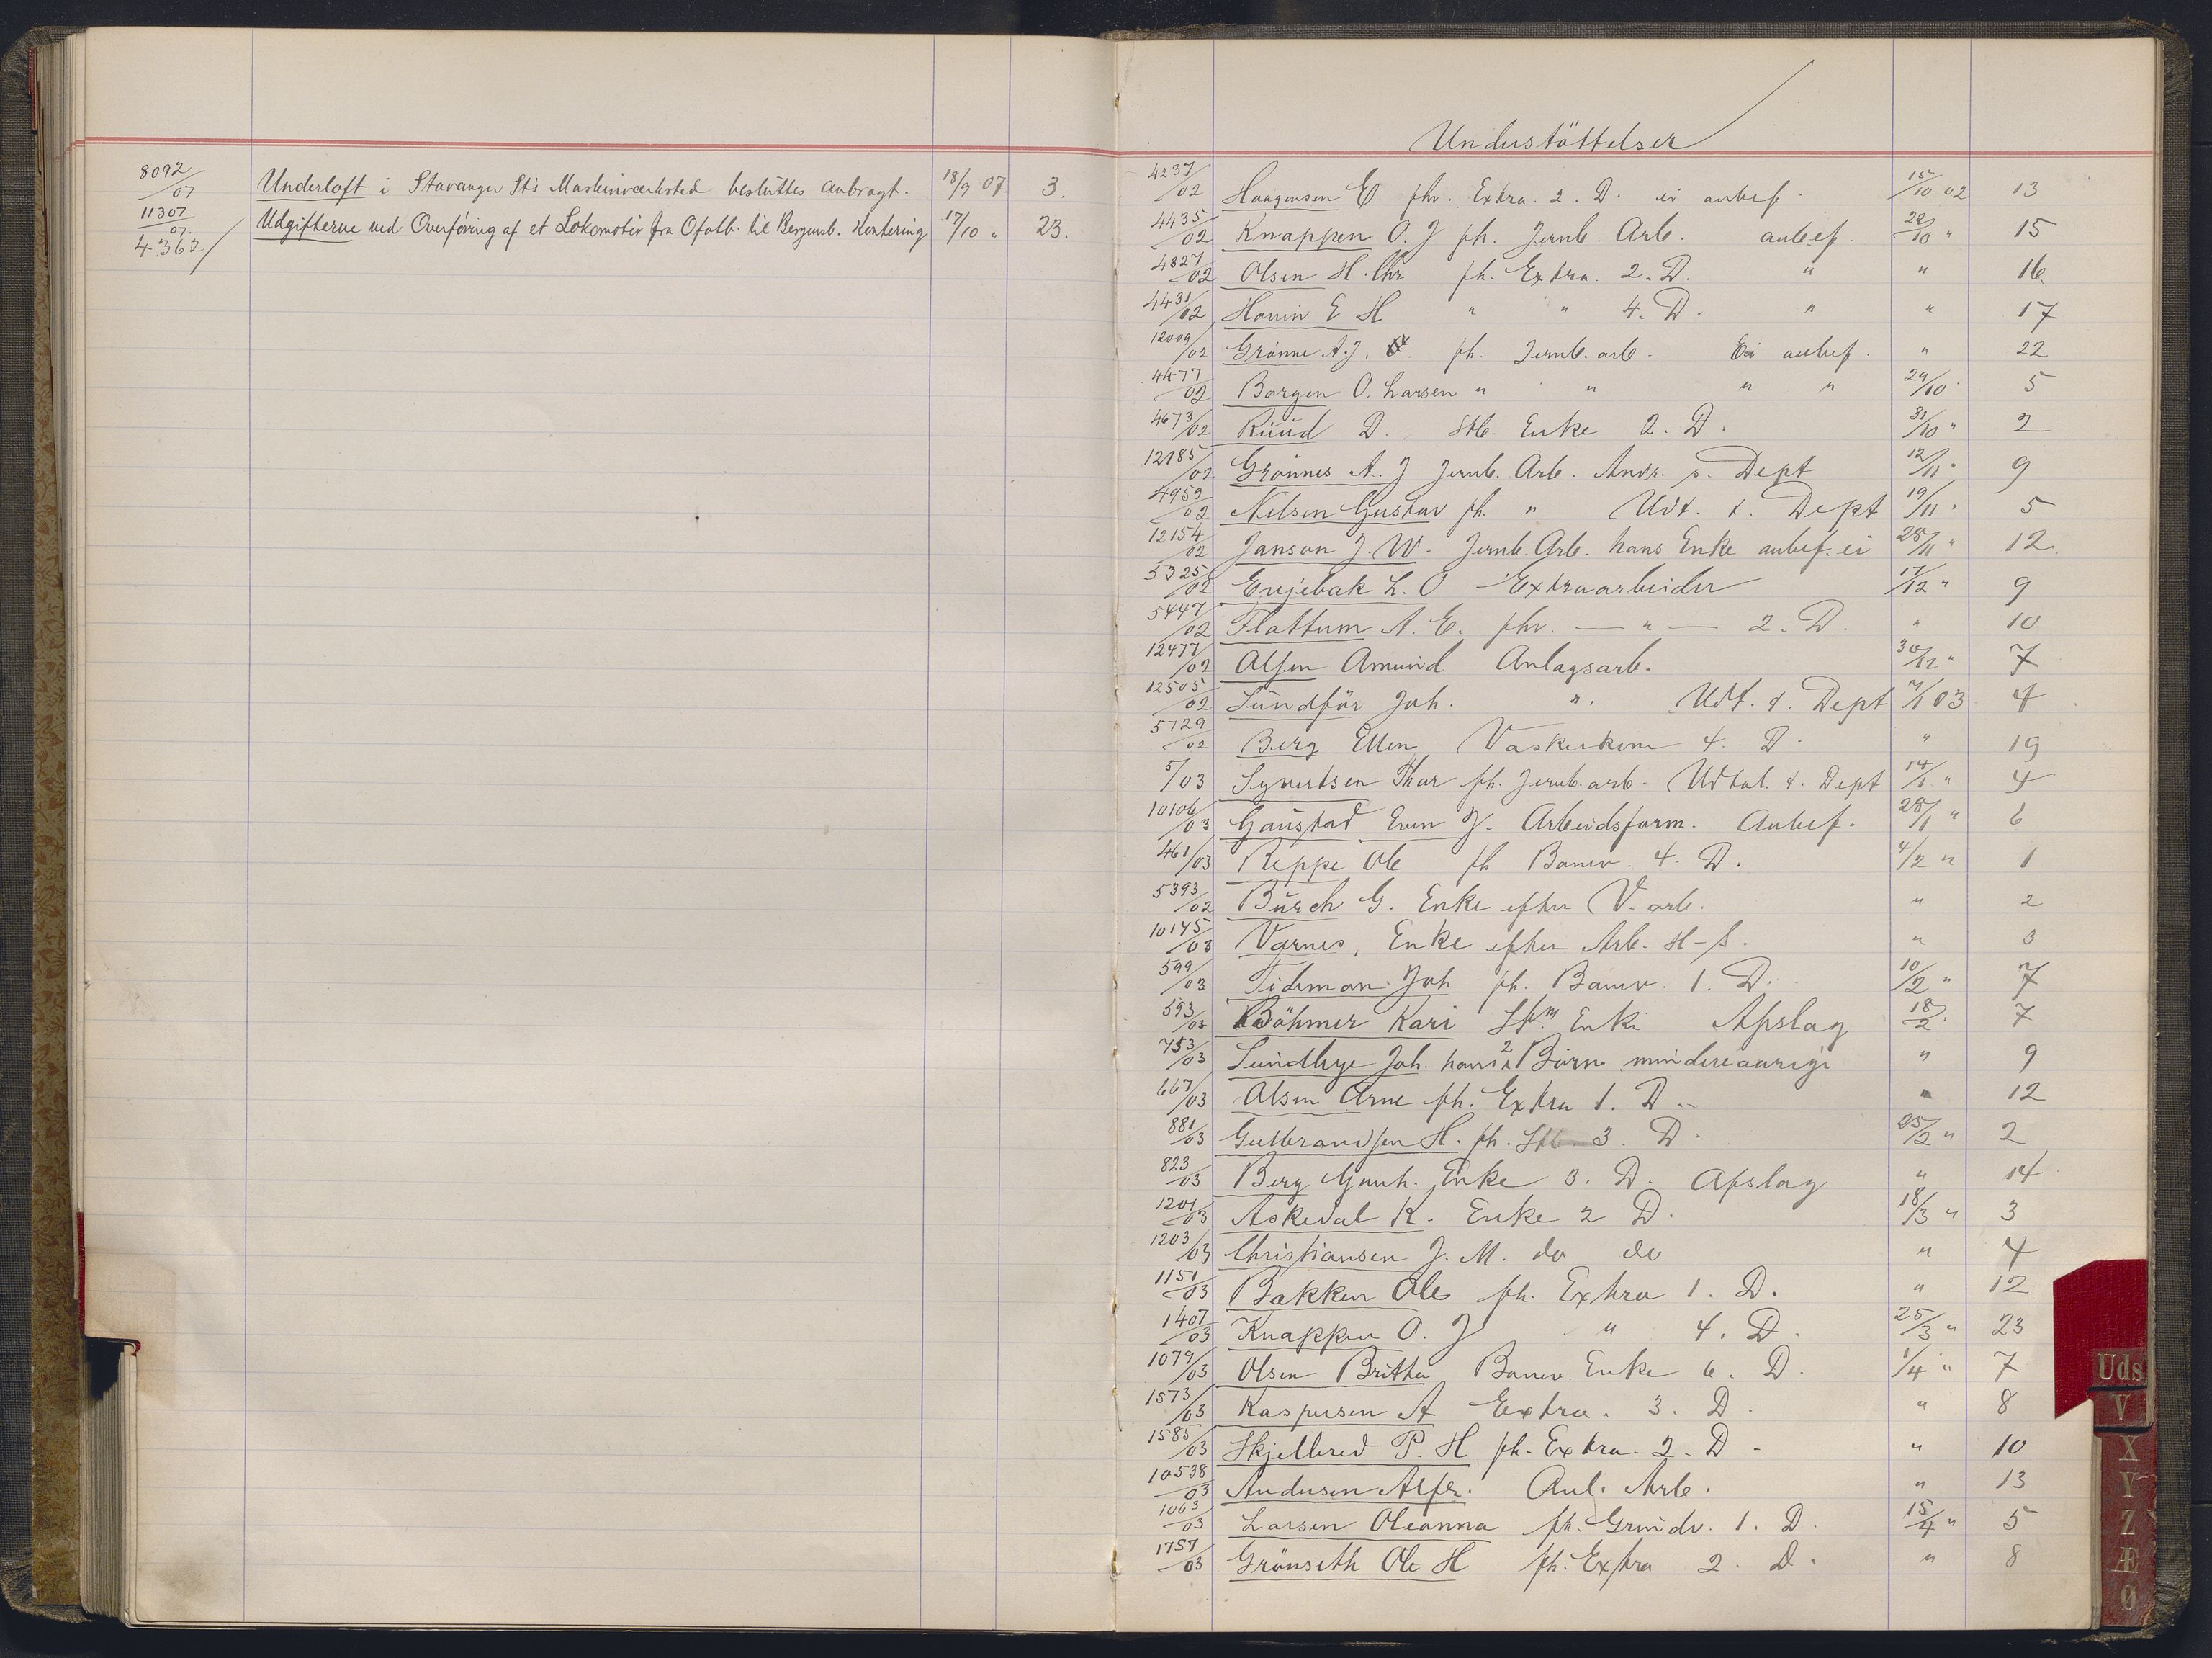 8092/07 Underloft i Stavanger St's Maskinværksted besluttes anbragt. 18/9 07 3.
11307/07. Udgifterne ved Overføring af et Lokomotiv fra Ofotb. til Bergensb. Kontering 17/10 " 23.
4362/
Understöttelser
4237/02 Haagensen E fhv. Extra. 2. D. ei anbef. 15/10 02 13
4435/02 Knappen O. J fh. Jernb. Arb. anbef. 22/10 " 15
4327/02 Olsen H. Chr fh. Extra. 2. D. " " 16
4431/02 Hovin E H " " 4. D. " " 17
12009/02 Grönne A. J. fh. Jernb. arb. Ei anbef. " 22
4477/02 Borgen O. Larsen " " " " 29/10 5
4673/02 Ruud D. Stb. Enke 2. D. 31/10 " 2
12185/02 Grönnes A. J Jernb. Arb. Andr. s. Dept 12/11 " 9
4959/02 Nilsen Gustav fh. " Udt. t. Dept 19/11 " 5
12154/02 Janson J. W. Jernb. Arb. hans Enke anbef. ei 28/11 " 12
5325/02 Evjebak L. O Extraarbeider 17/12 " 9
5447/02 Flattum A. E. fhv. — " — 2. D. " 10
12477/02 Olsen Amund Anlagsarb. 30/12 " 7
12505/02 Sundför Joh. ". Udt. t. Dept 7/1 03 4
5729/02 Berg Ellen Vaskerkone 4. D. " 19
5/03 Syvertsen Thor fh. Jernb. arb. Udtal. t. Dept 14/1 " 4
10106/03 Gaustad Even J. Arbeidsform. Anbef. 28/1 " 6
461/03 Reppe Ole fh Banev. 4. D. 4/2 " 1
5393/02 Busch G. Enke efter V. arb. " 2
10145/03 Varnes, Enke efter Arb. H-S. " 3
599/03 Tideman Joh fh. Banev. 1. D. 10/2 " 7
593/03 Böhmer Kari Stm Enke Afslag 18/2 . 7
753/03 Sundbye Joh. hans 2 Börn mindreaarige " 9
667/03 Olsen Arne fh. Extra 1. D. " 12
881/03 Gulbrandsen H. fh. Stb. 3. D. 25/2 " 2
823/03 Berg Gunh. Enke 3. D. Afslag " 14
1201/03 Askedal K. Enke 2 D. 18/3 " 3
1203/03 Christiansen J. M. do do " 4
1151/03 Bakken Ole fh. Extra 1. D. " 12
1407/03 Knappen O. J " 4. D. 25/3 " 23
1079/03 Olsen Brithe Banev. Enke 6. D. 1/4 " 7
1573/03 Kaspersen A Extra. 3. D. " 8
1585/03 Skjelbred P. H fh. Extra. 2. D. " 10
10538/03 Andersen Alfr. Anl. Arb. " 13
1063/03 Larsen Oleanna fh. Grindv. 1. D. 15/4 " 5
1757/03 Grönseth Ole H fh. Extra 2. D. " 8
Uds
V
X
Y
Z
Æ
Ø